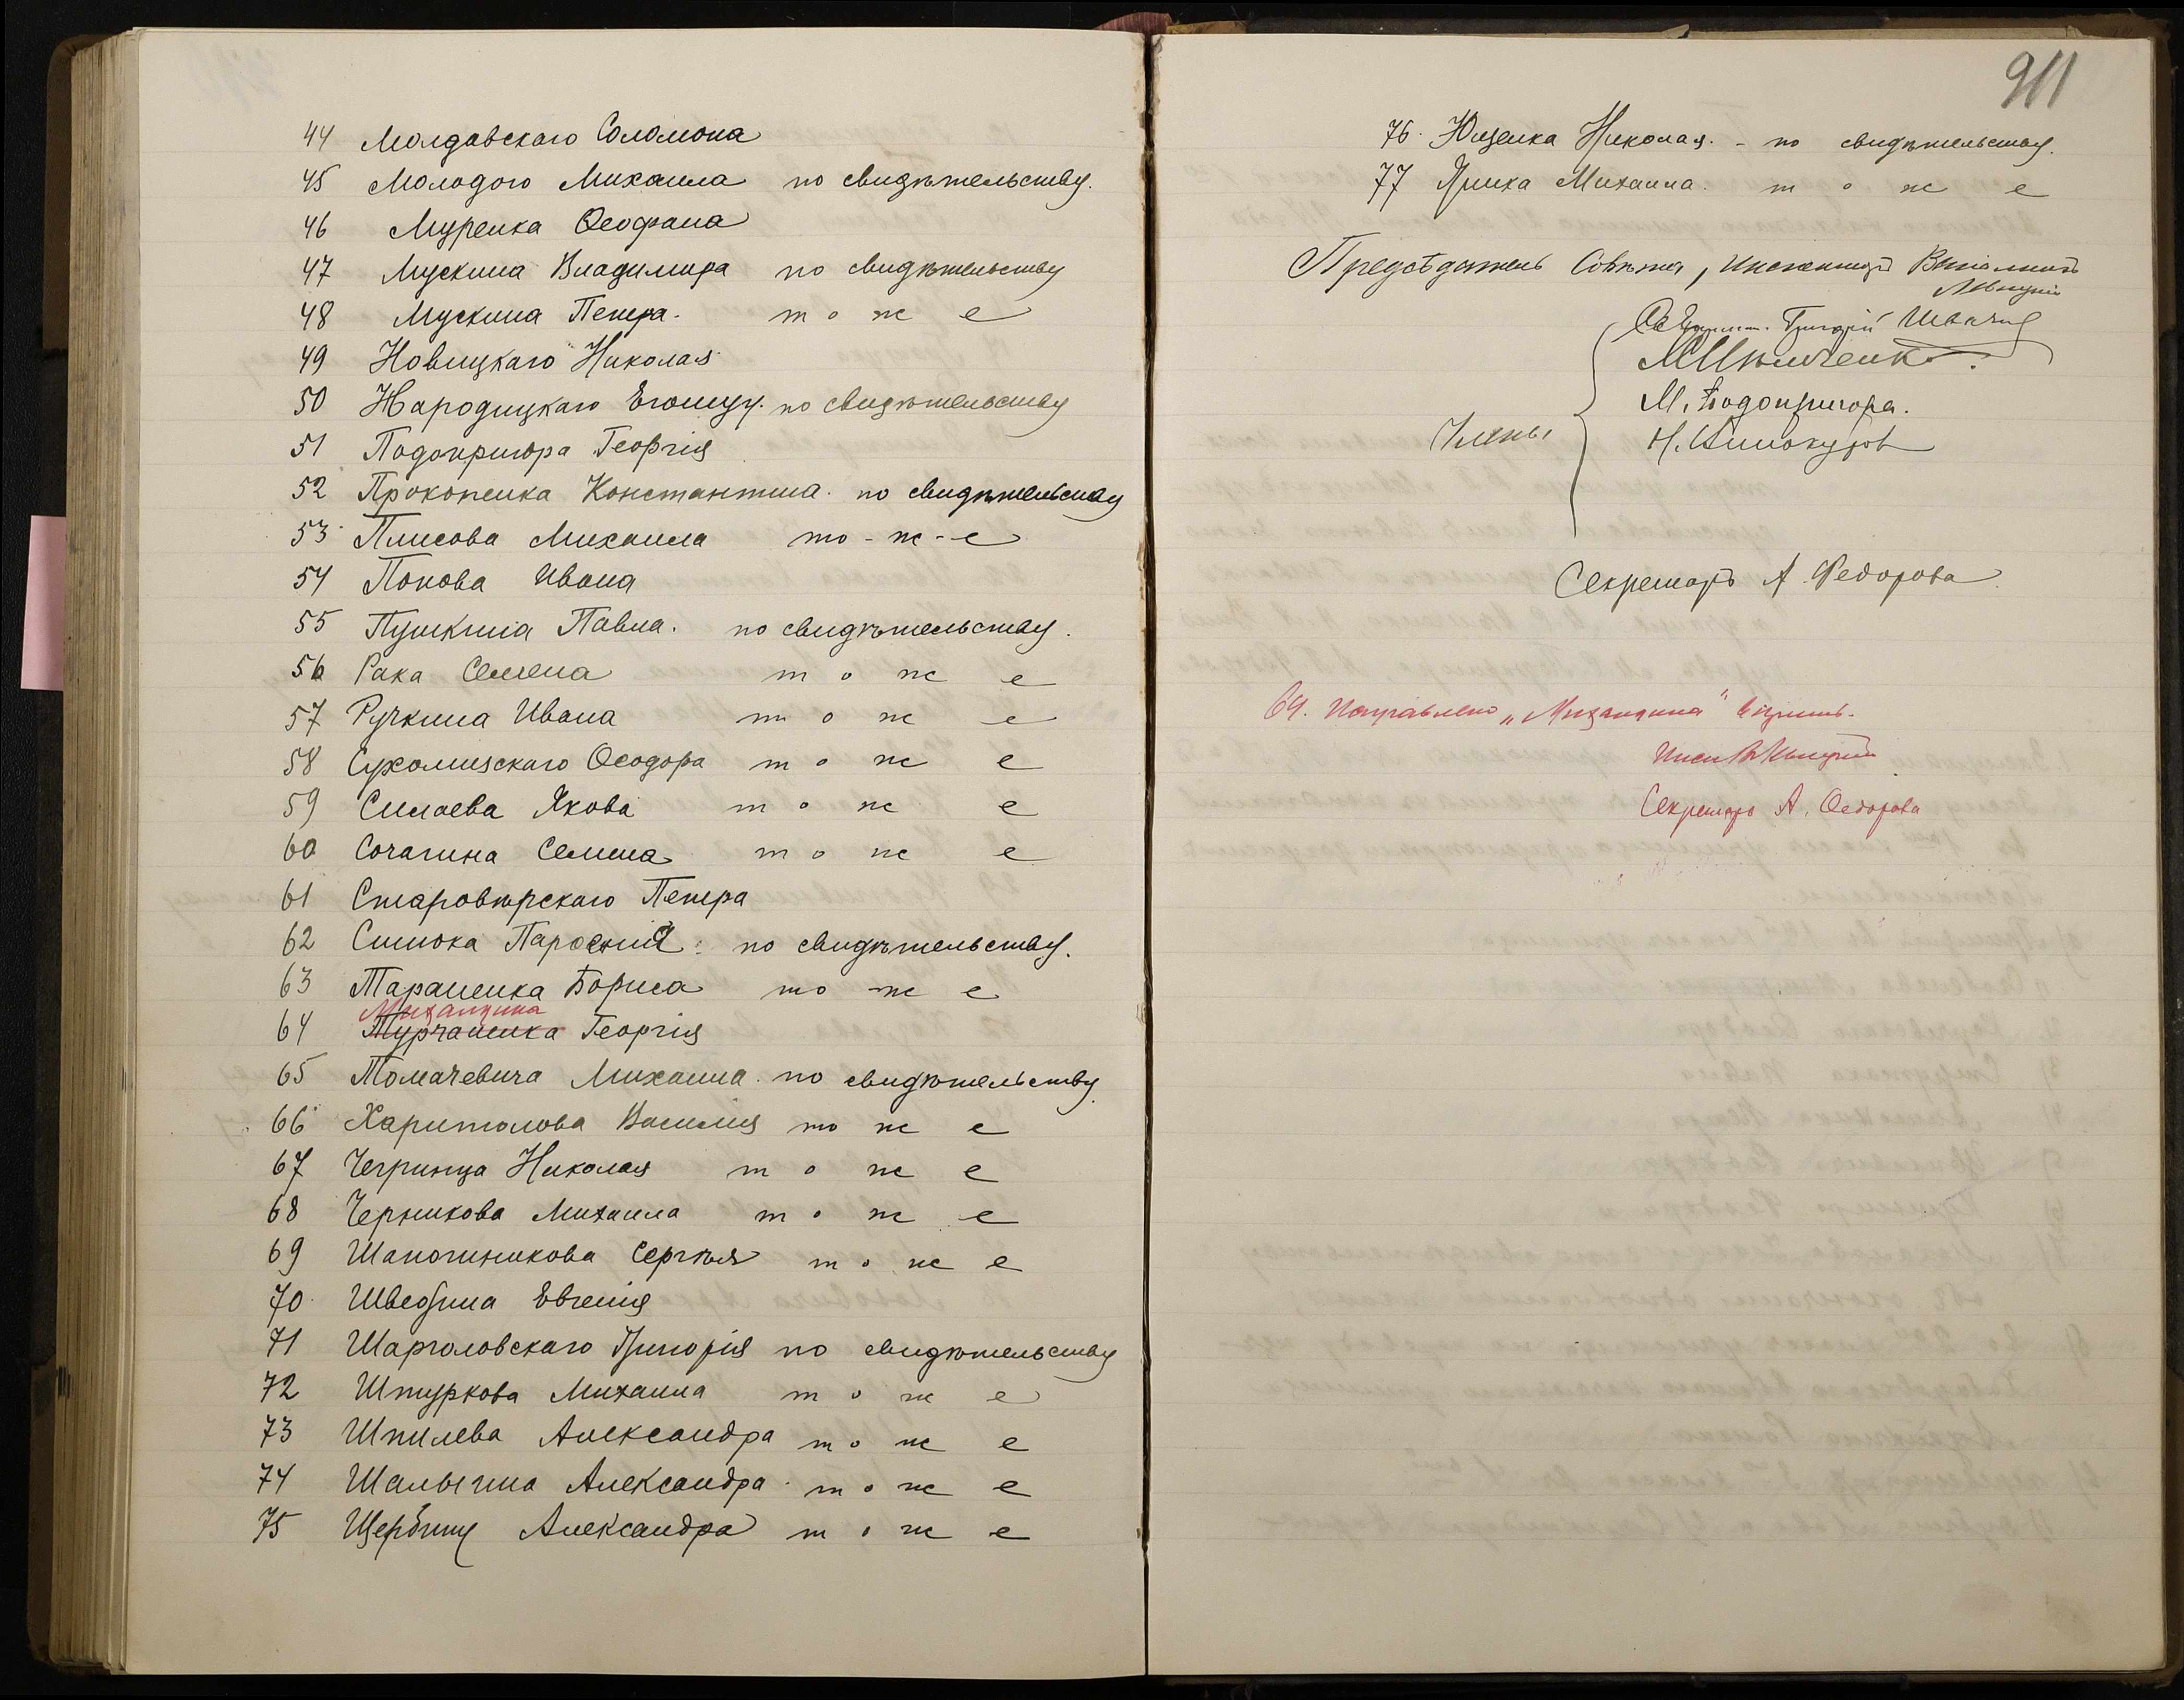 44 Молдавскаго Соломона
45 Молодого Михаила по свидѣтельству.
46 Муренка Ѳеофана
47 Мускина Владимира по свидѣтельству
48 Мускина Петра. т о ж е
49 Новицкаго Николая
50 Народицкаго по свидѣтельству
51 Подопригора Георгія
52 Прокопенка Константина. по свидѣтельству
53 Плисова Михаила то - ж - е
54 Попова Ивана
55 Пушкина Павла. по свидѣтельству.
56 Рака Семена т о ж е
57 Ручкина Ивана т о ж е
58 Ѳеодора т о ж е
59 Силаева Якова т о ж е
60 Сочагина Семена т о ж е
61 Старовѣрскаго Петра
62 по свидѣтельству.
63 Тараненка Бориса то ж е
64 Турчаненка Георгія
65 Томачевича Михаила. по свидѣтельству.
66 Харитонова Василія то ж е
67 Чегринца Николая т о ж е
68 Черникова Михаила т о ж е
69 Шапочникова Сергѣя т о ж е
70 Евгенія
71 Шарголовскаго Григорія по свидѣтельству
72 Шпуркова Михаила т о ж е
73 Шпилева Александра т о ж е
74 Шалыгина Александра т о ж е
75 Щербину Александра т о ж е
911
76. Ющенка Николая. - по свидѣтельству.
77 Михаила. т о ж е
Предсѣдатель Совѣта, Инспекторъ
Григорій
М. Подопригора.
Члены
Н. Винокуров
Секретарь А. Федорова
64. Исправлено
Секретарь А. Ѳедорова